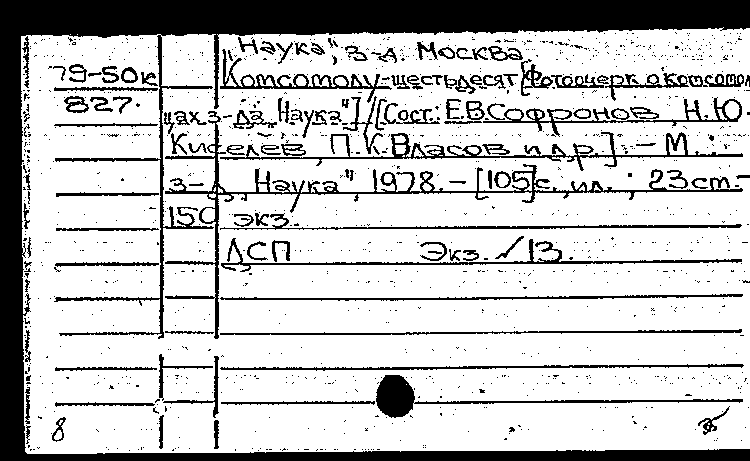 „Наука", з-д. Москва
79-50к Комсомолу-шестьдесят [Фотоочерк о комсомоль
827. цах з-да „Наука"] / [Сост.: Е.В.Софронов, Н.Ю.
Киселёв, П.К.Власов и др.]. - М.:
з-д „Наука", 1978. - [105]с., ил. ; 23 см. -
150 экз.
ДСП Экз. № 13.
8